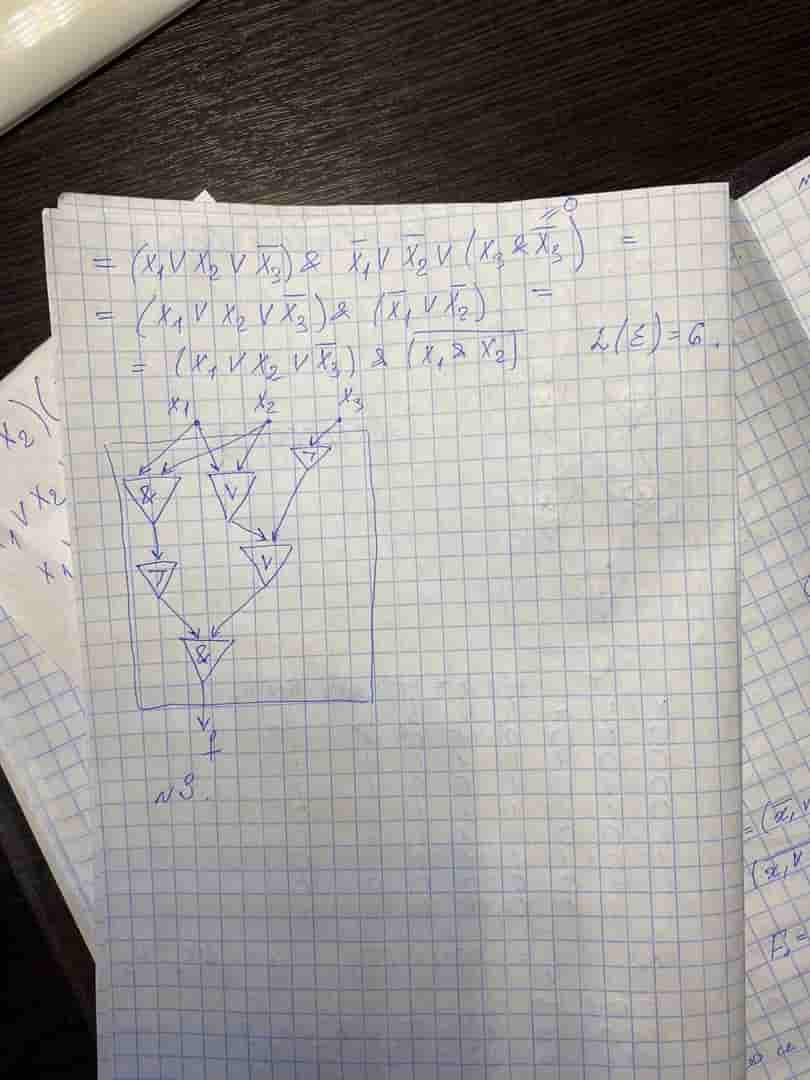 = (x₁ ∨ x₂ ∨ x̅₃) & x̅₁ ∨ x̅₂ ∨ (x₃ & x̅₃) =
= 0
= (x₁ ∨ x₂ ∨ x̅₃) & (x̅₁ ∨ x̅₂) =
= (x₁ ∨ x₂ ∨ x̅₃) & (x̅₁̅ ̅&̅ ̅x̅₂̅) L(Σ) = 6.
x₁ x₂ x₃
& ∨ ¬
¬ ∨
&
f
N3.
x₂)(
₁ ∨ x₂
x₁
= (x̅₁ ∨
(x₁ ∨